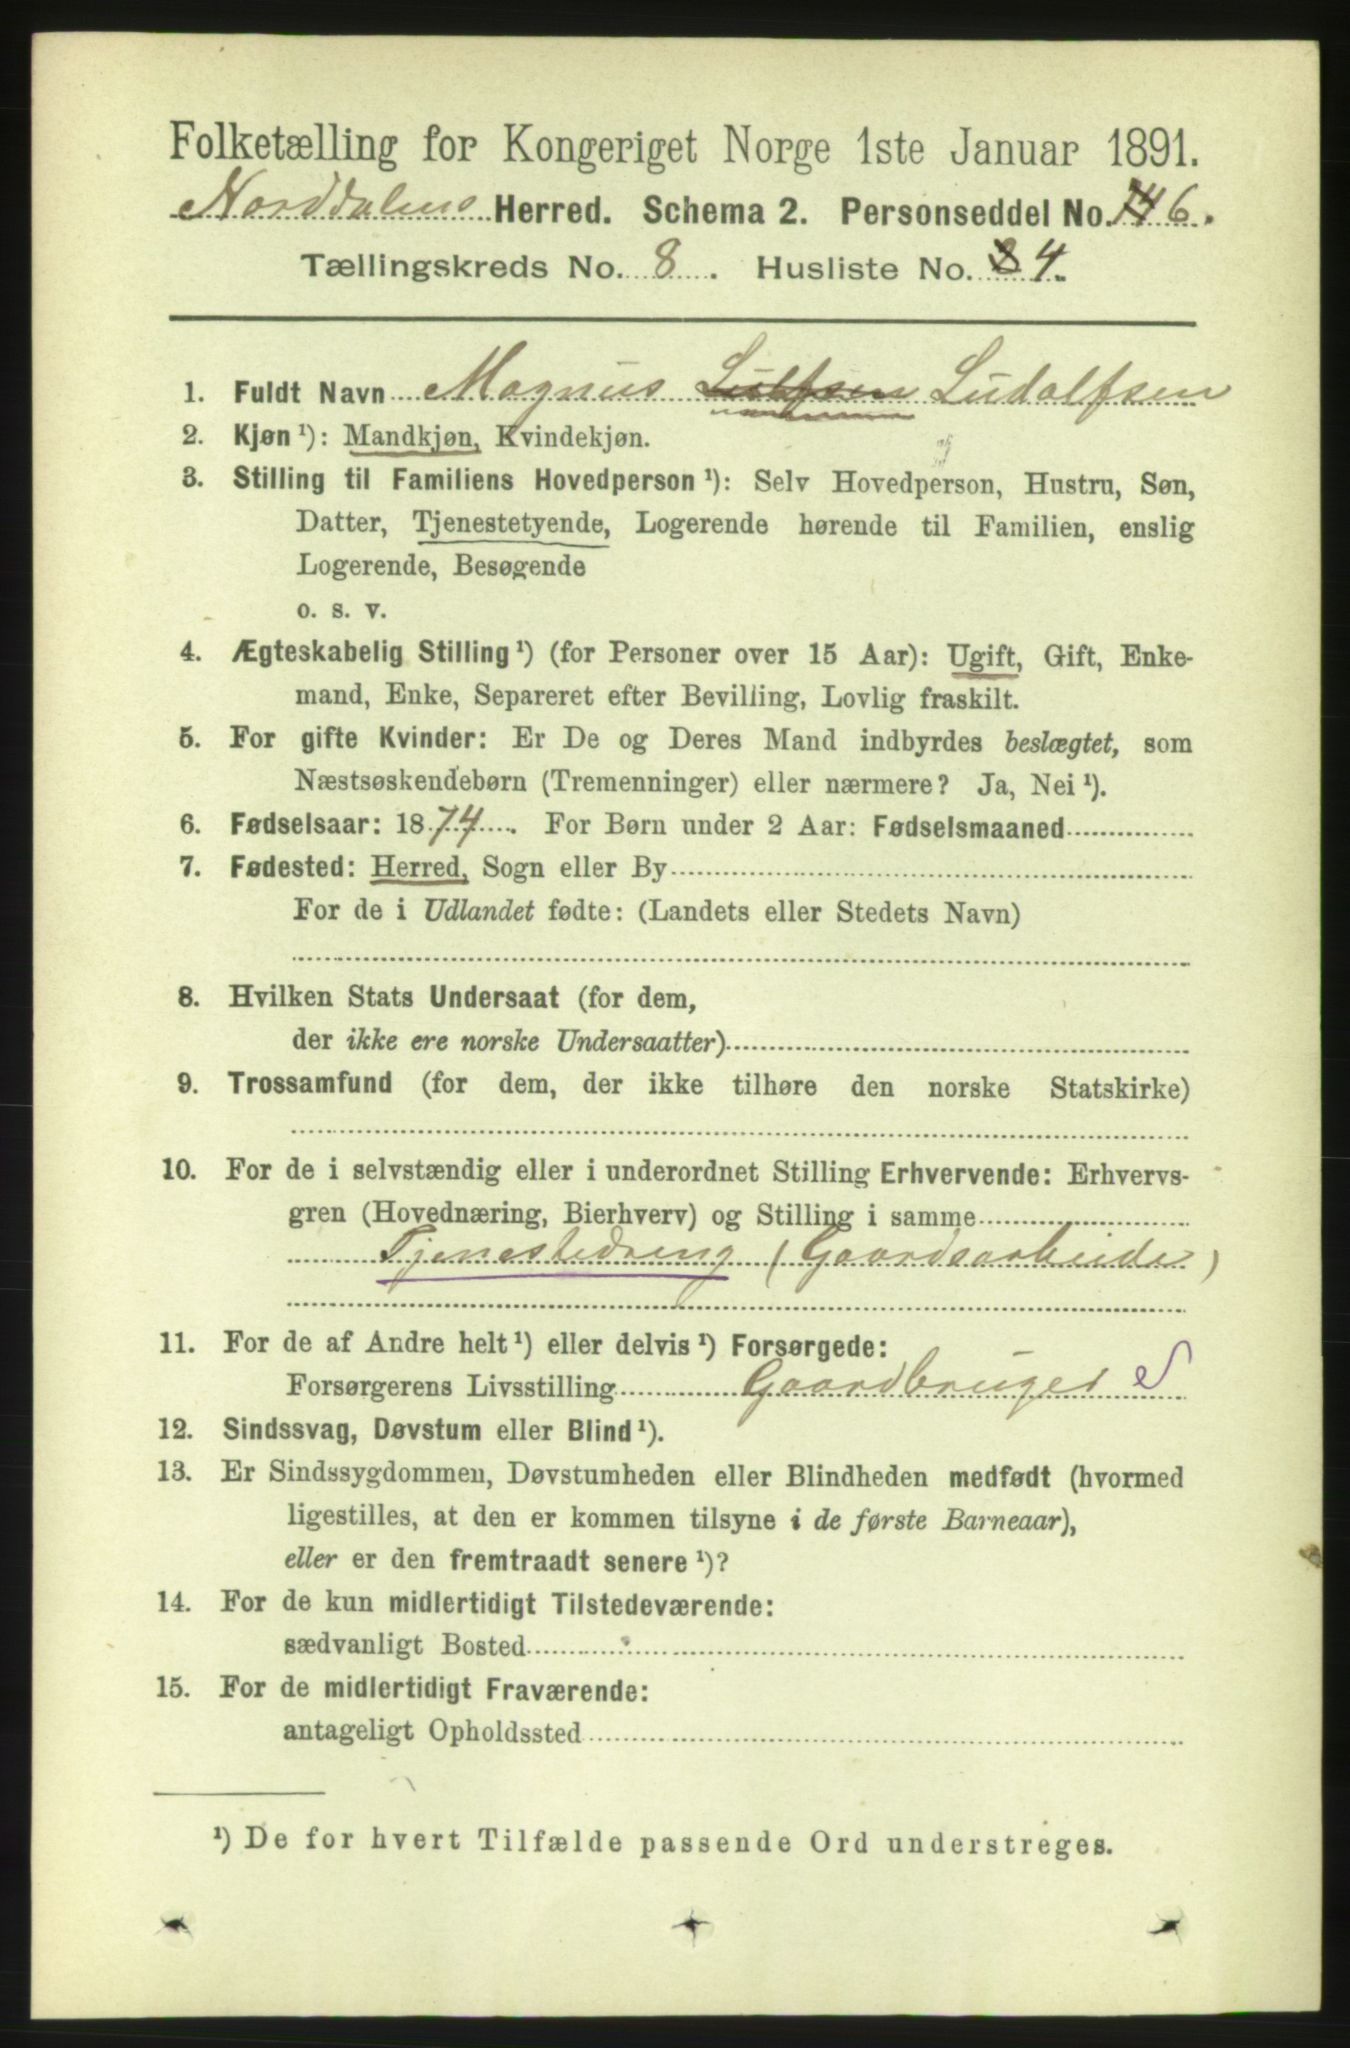 Folketælling for Kongeriget Norge 1ste Januar 1891.
Norddalens Herred. Schema 2. Personseddel No. 6.
Tællingskreds No. 8. Husliste No. 4.
1. Fuldt Navn Magnus Ludalfsen
2. Kjøn ¹): Mandkjøn, Kvindekjøn.
3. Stilling til Familiens Hovedperson ¹): Selv Hovedperson, Hustru, Søn,
Datter, Tjenestetyende, Logerende hørende til Familien, enslig
Logerende, Besøgende
o. s. v.
4. Ægteskabelig Stilling ¹) (for Personer over 15 Aar): Ugift, Gift, Enke-
mand, Enke, Separeret efter Bevilling, Lovlig fraskilt.
5. For gifte Kvinder: Er De og Deres Mand indbyrdes beslægtet, som
Næstsøskendebørn (Tremenninger) eller nærmere? Ja, Nei ¹).
6. Fødselsaar: 1874. For Børn under 2 Aar: Fødselsmaaned
7. Fødested: Herred, Sogn eller By
For de i Udlandet fødte: (Landets eller Stedets Navn)
8. Hvilken Stats Undersaat (for dem,
der ikke ere norske Undersaatter)
9. Trossamfund (for dem, der ikke tilhøre den norske Statskirke)
10. For de i selvstændig eller i underordnet Stilling Erhvervende: Erhvervs-
gren (Hovednæring, Bierhverv) og Stilling i samme
Tjenestedreng (Gaardsarbeide)
11. For de af Andre helt ¹) eller delvis ¹) Forsørgede:
Forsørgerens Livsstilling Gaardbruger S
12. Sindssvag, Døvstum eller Blind ¹).
13. Er Sindssygdommen, Døvstumheden eller Blindheden medfødt (hvormed
ligestilles, at den er kommen tilsyne i de første Barneaar),
eller er den fremtraadt senere ¹)?
14. For de kun midlertidigt Tilstedeværende:
sædvanligt Bosted
15. For de midlertidigt Fraværende:
antageligt Opholdssted
¹) De for hvert Tilfælde passende Ord understreges.